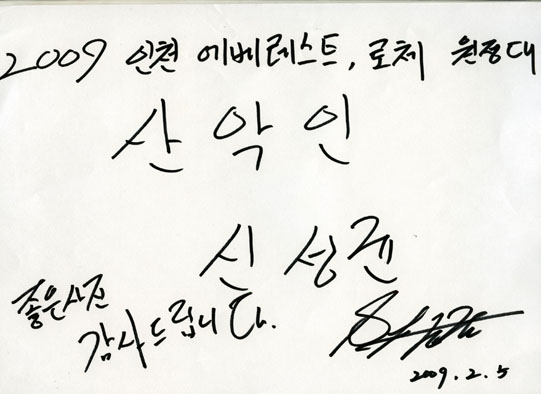 2009 인천 에베레스트, 로체 원정대
산 악 인
신 성
좋은사진
감사드립니다.
2009. 2. 5